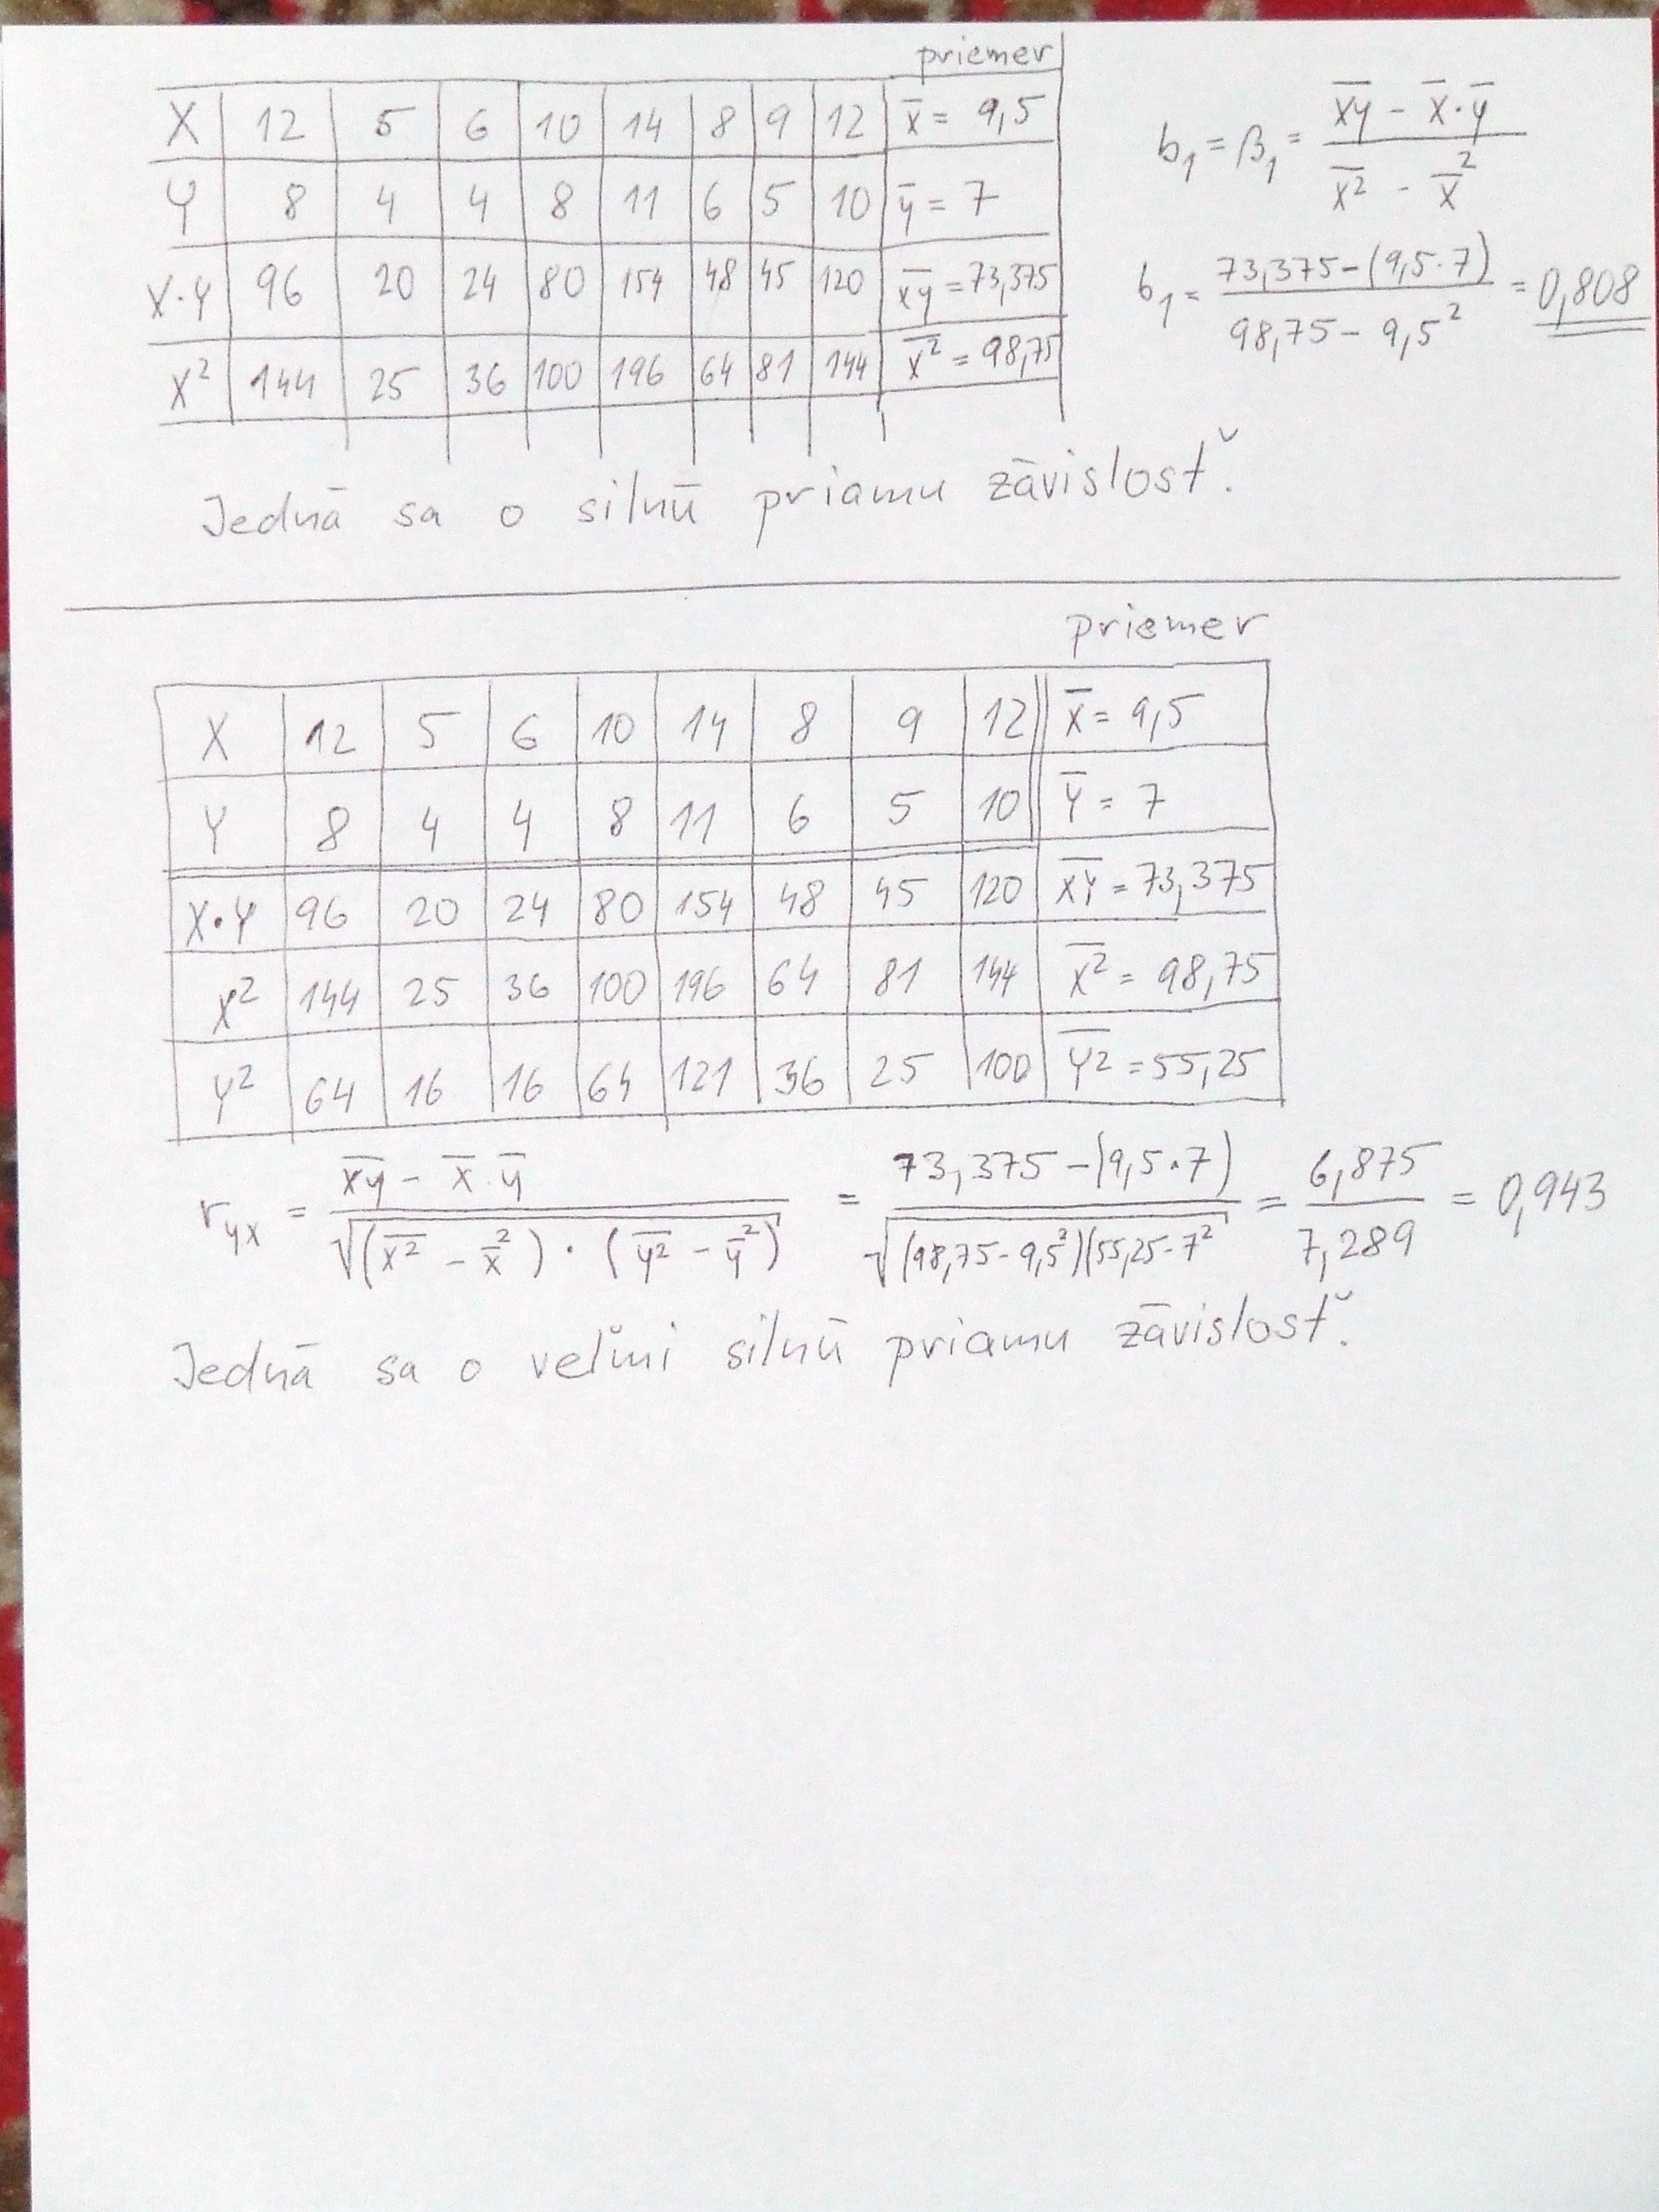 priemer
X 12 5 6 10 14 8 9 12 x̄ = 9,5
Y 8 4 4 8 11 6 5 10 ȳ = 7
X·Y 96 20 24 80 154 48 45 120 x̅y̅ = 73,375
X² 144 25 36 100 196 64 81 144 x̅²̅ = 98,75
b₁ = β₁ = (x̅y̅ - x̄·ȳ) / (x̅²̅ - x̄²)
b₁ = (73,375 - (9,5·7)) / (98,75 - 9,5²) = 0,808
Jedná sa o silnú priamu závislosť.
priemer
X 12 5 6 10 14 8 9 12 x̄ = 9,5
Y 8 4 4 8 11 6 5 10 Y̅ = 7
X·Y 96 20 24 80 154 48 45 120 X̅Y̅ = 73,375
X² 144 25 36 100 196 64 81 144 x̅²̅ = 98,75
Y² 64 16 16 64 121 36 25 100 Y̅²̅ = 55,25
r_yx = (x̅y̅ - x̄·ȳ) / √((x̅²̅ - x̄²)·(y̅²̅ - ȳ²)) = (73,375 - (9,5·7)) / √((98,75 - 9,5²)(55,25 - 7²) = 6,875 / 7,289 = 0,943
Jedná sa o veľmi silnú priamu závislosť.